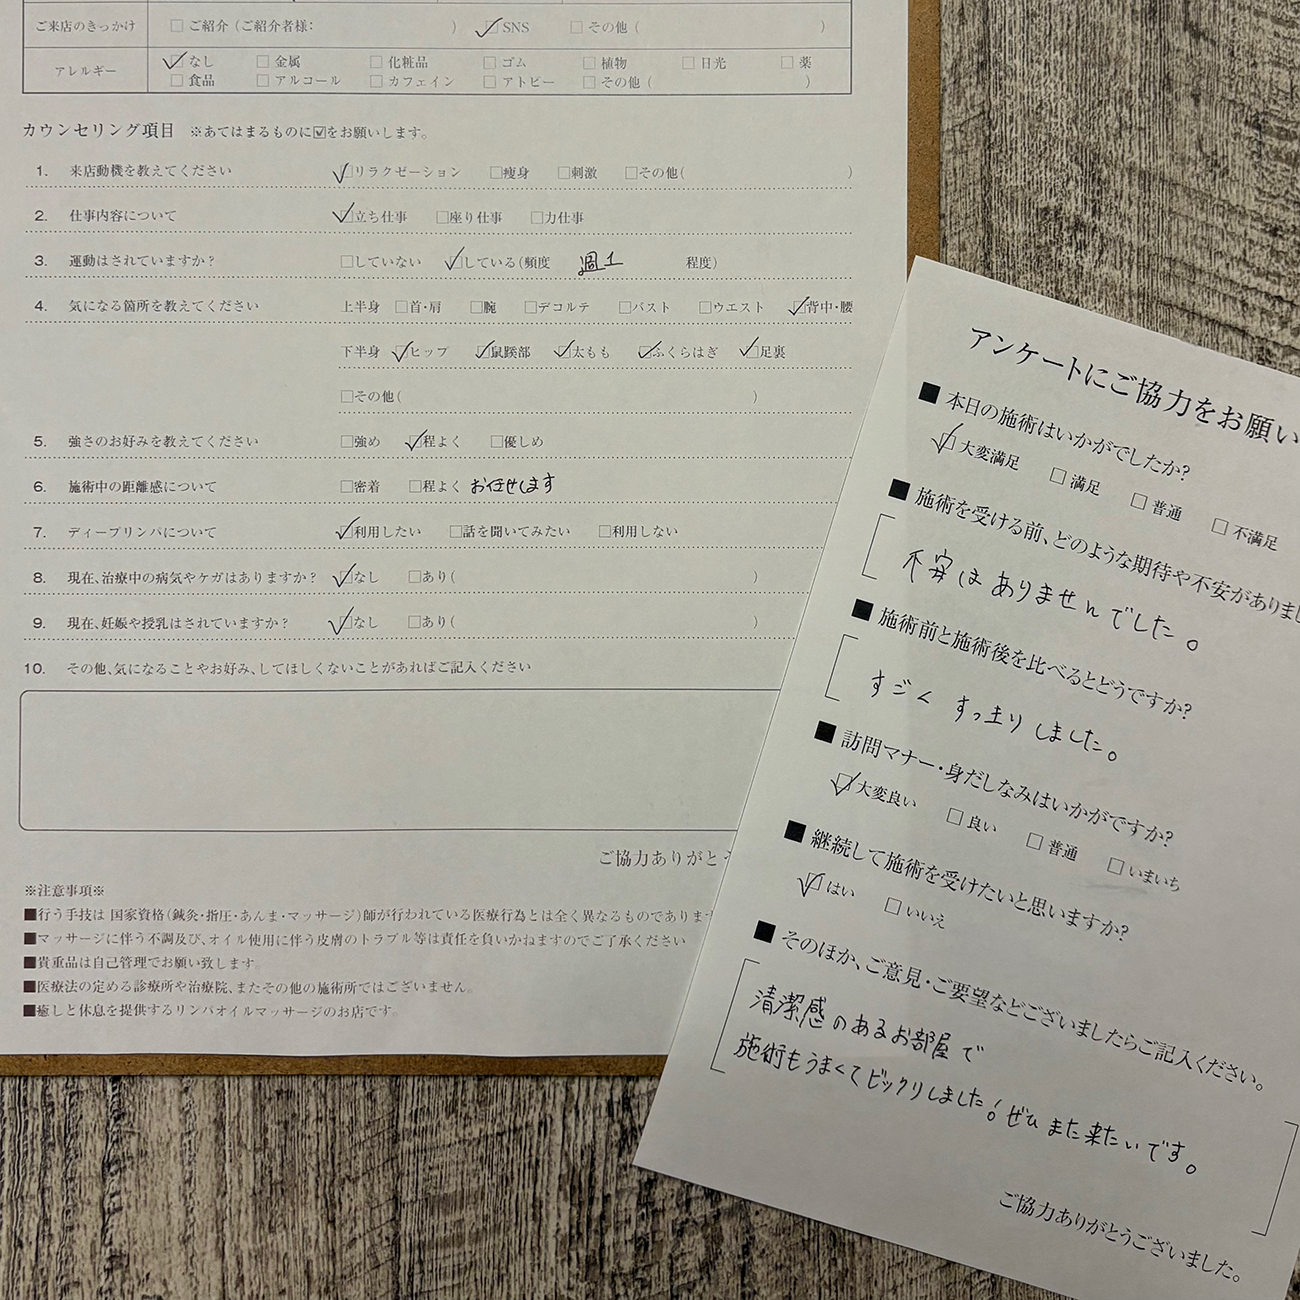 ご来店のきっかけ □ご紹介（ご紹介者様： ） ☑SNS □その他（ ）
アレルギー ☑なし □金属 □化粧品 □ゴム □植物 □日光 □薬
□食品 □アルコール □カフェイン □アトピー □その他（ ）
カウンセリング項目 ※あてはまるものに☑をお願いします。
1. 来店動機を教えてください ☑リラクゼーション □痩身 □刺激 □その他（ ）
2. 仕事内容について ☑立ち仕事 □座り仕事 □力仕事
3. 運動はされていますか？ □していない ☑している（頻度 週1 程度）
4. 気になる箇所を教えてください 上半身 □首・肩 □腕 □デコルテ □バスト □ウエスト ☑背中・腰
下半身 ☑ヒップ ☑鼠蹊部 ☑太もも ☑ふくらはぎ ☑足裏
□その他（ ）
5. 強さのお好みを教えてください □強め ☑程よく □優しめ
6. 施術中の距離感について □密着 □程よく お任せします
7. ディープリンパについて ☑利用したい □話を聞いてみたい □利用しない
8. 現在、治療中の病気やケガはありますか？ ☑なし □あり（ ）
9. 現在、妊娠や授乳はされていますか？ ☑なし □あり（ ）
10. その他、気になることやお好み、してほしくないことがあればご記入ください
ご協力ありがと
※注意事項※
■行う手技は 国家資格（鍼灸・指圧・あんま・マッサージ）師が行われている医療行為とは全く異なるものであります
■マッサージに伴う不調及び、オイル使用に伴う皮膚のトラブル等は責任を負いかねますのでご了承ください
■貴重品は自己管理でお願い致します。
■医療法の定める診療所や治療院、またその他の施術所ではございません。
■癒しと休息を提供するリンパオイルマッサージのお店です。
アンケートにご協力をお願い
■ 本日の施術はいかがでしたか？
☑大変満足 □満足 □普通 □不満足
■ 施術を受ける前、どのような期待や不安がありまし
不安はありませんでした。
■ 施術前と施術後を比べるとどうですか？
すごく すっきりしました。
■ 訪問マナー・身だしなみはいかがですか？
☑大変良い □良い □普通 □いまいち
■ 継続して施術を受けたいと思いますか？
☑はい □いいえ
■ そのほか、ご意見・ご要望などございましたらご記入ください。
清潔感のあるお部屋で
施術もうまくてビックリしました！ぜひまた来たいです。
ご協力ありがとうございました。